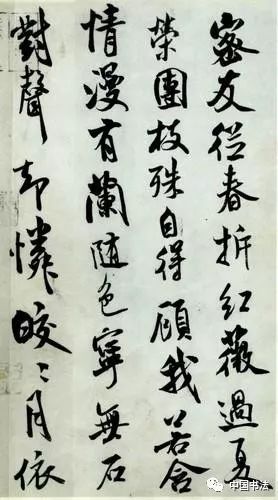 密友從春拆紅薇過夏
榮團枝殊自得顧我若含
情漫有蘭随色寧無石
對聲却憐皎〻月依
中国书法